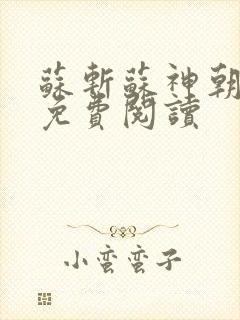 蘇斬蘇神朝
免費閱讀
小蠻蠻子